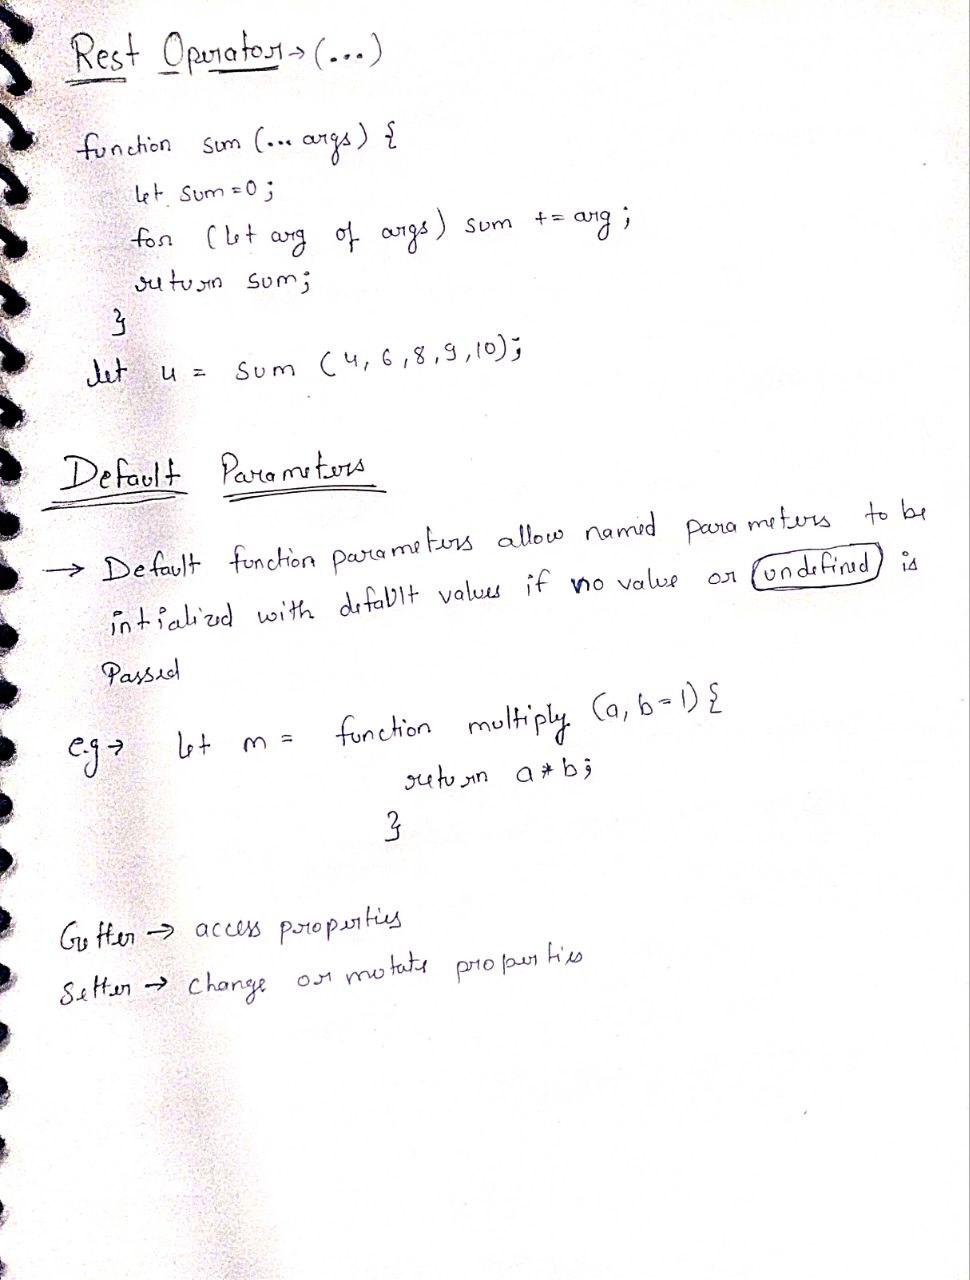 Rest Operator → (...)
function sum (... args) {
let sum = 0 ;
for (let arg of args) sum += arg ;
return sum;
}
let u = sum (4, 6, 8, 9, 10);
Default Parameters
→ Default function parameters allow named parameters to be
intialized with default values if no value or undefined is
Passed
e.g → let m = function multiply (a, b = 1) {
return a * b;
}
Getter → access properties
Setter → change or mutate properties